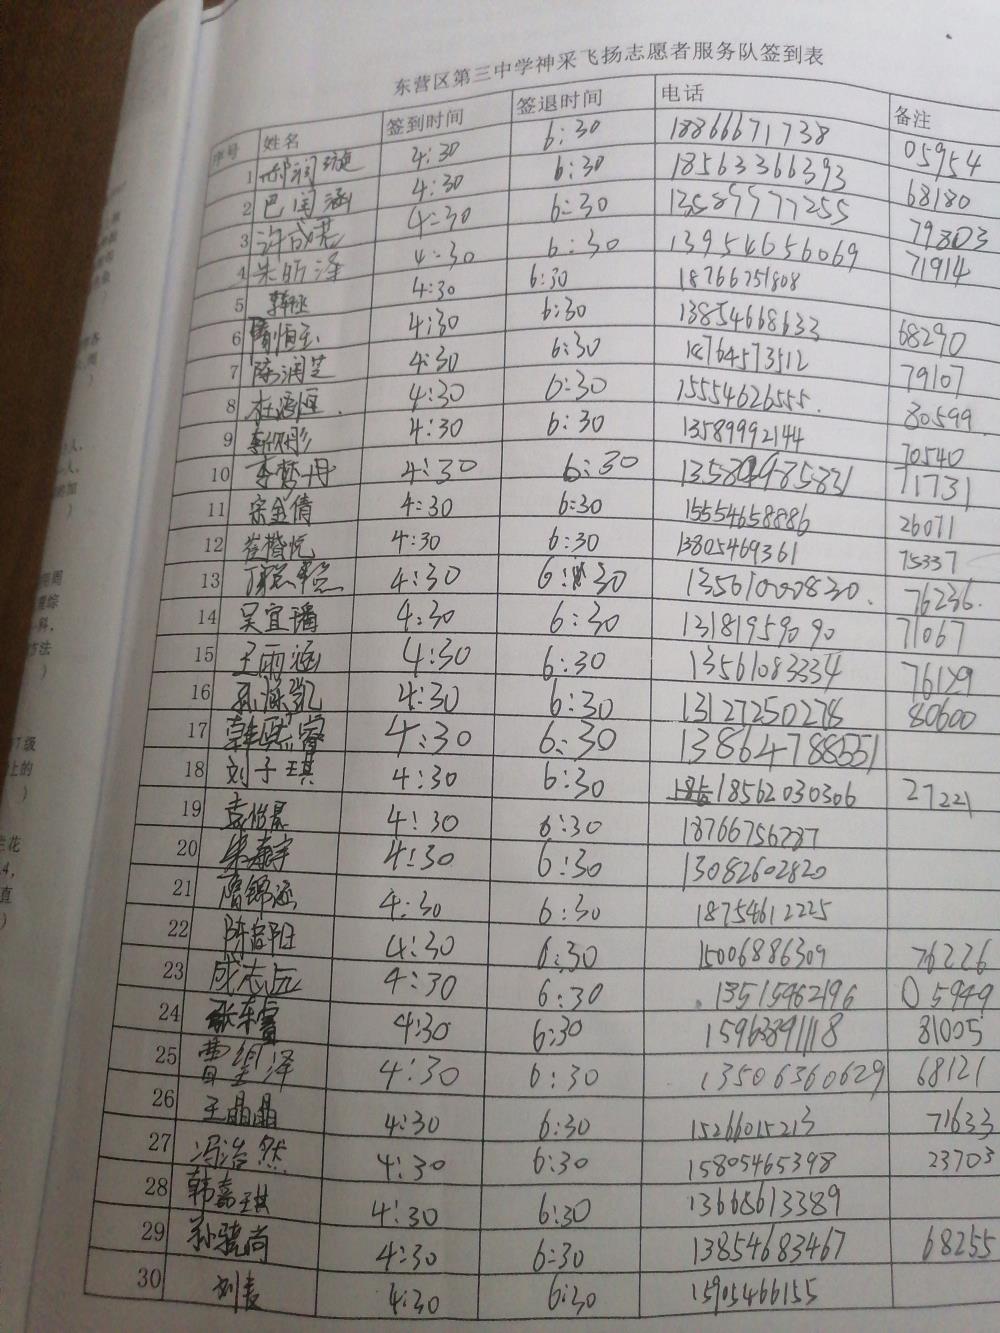 东营区第三中学神采飞扬志愿者服务队签到表
序号 姓名 签到时间 签退时间 电话 备注
1 郝润璇 4:30 6:30 18866671738 05954
2 巴闰涵 4:30 6:30 18563366393 68180
3 许成君 4:30 6:30 13589977255 79803
4 朱昕泽 4:30 6:30 13954656069 71914
5 4:30 6:30 18766751808
6 4:30 6:30 13854668633 68290
7 陈润芝 4:30 6:30 18764573512 79107
8 杜潘恒 4:30 6:30 15554626555 80599
9 4:30 6:30 13589992144 70540
10 李梦丹 4:30 6:30 71731
11 宗金倩 4:30 6:30 15554658886 26071
12 崔楷悦 4:30 6:30 13805469361 75337
13 4:30 6:30 13561000830 76236
14 吴宜璠 4:30 6:30 13181959090 71067
15 王雨涵 4:30 6:30 13561083334 76129
16 4:30 6:30 13127250278 80600
17 韩熙睿 4:30 6:30 13864788551
18 刘子琪 4:30 6:30 18562030306 27221
19 4:30 6:30 18766756787
20 朱寿宇 4:30 6:30 13082602820
21 唐锦涵 4:30 6:30 18754612225
22 4:30 6:30 15006886309 76226
23 成志远 4:30 6:30 13515462196 05949
24 张东睿 4:30 6:30 15963891118 81005
25 曹钰泽 4:30 6:30 13506360629 68121
26 王晶晶 4:30 6:30 15266015213 71633
27 冯浩然 4:30 6:30 15805465398 23703
28 韩嘉琪 4:30 6:30 13668613389
29 孙骁尚 4:30 6:30 13854683467 68255
30 刘麦 4:30 6:30 15905466155